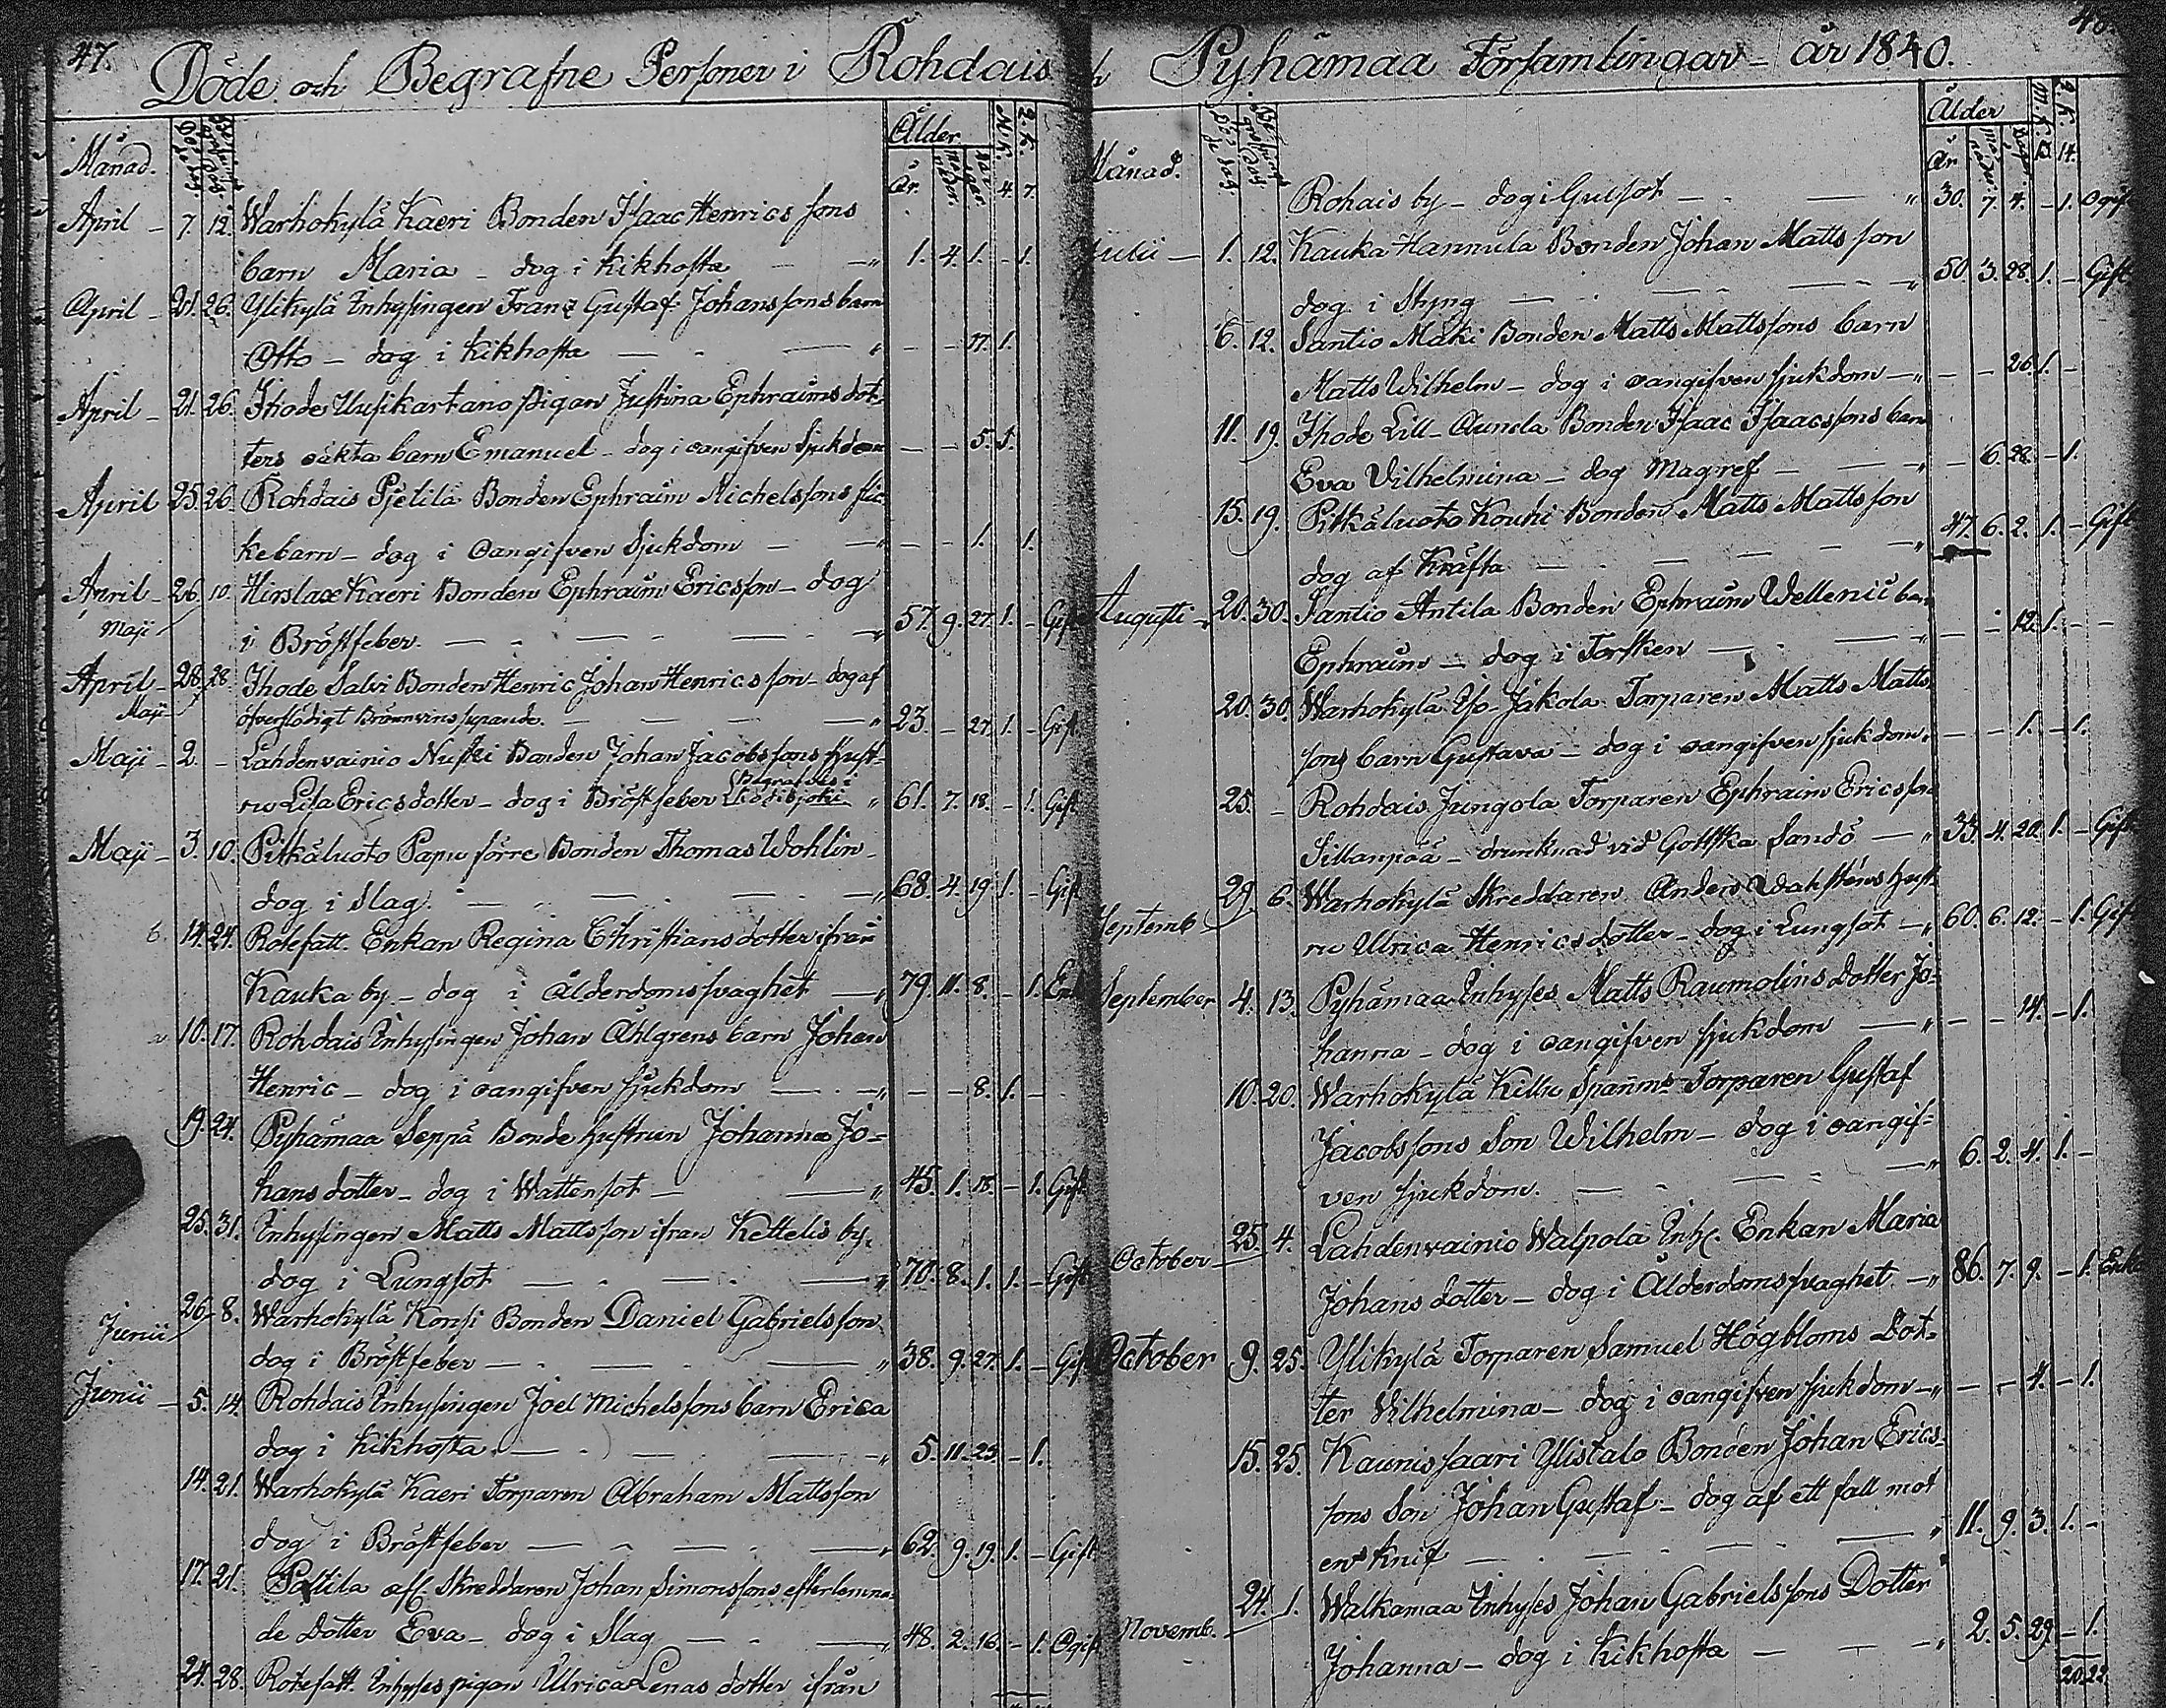 47.
Döde och Begrafne Personer i Rohdais
Månad.
Ålder
År.
4. 7.
April - 7. 12. Warhokylä Kaeri Bonden Isaac Henrics sons
barn Maria - dog i kikhosta - " 1. 4. 1. - 1.
April - 21. 26. Ylikylä Inhysingen Franz Gustaf Johanssons barn
Otto - dog i kikhosta - " - - 17. 1.
April - 21. 26. Ihode Uusikartano pigan Justina Ephraims dot-
ters oäkta barn Emanuel - dog i oangifven Sjukdom - - 5. 1.
April 25. 26. Rohdais Pjetilä Bonden Ephraim Michelssons flic-
kebarn - dog i oangifven Sjukdom - " - - 1. 1.
April - 26. 10. Hirslax Kaeri Bonden Ephraim Ericsson - dog
Maji
i Bröstfeber. - " 57. 9. 27. 1. - Gift
April - 28. 28. Ihode Salvi Bonden Henric Johan Henricsson - dog af
Maji
öfverflödigt Brännvins supande. - " 23. - 27. 1. - Gift.
Maji - 2. - Lahdenvainio Nuski Bonden Johan Jacobssons hust-
Begrafdes i
ru Lisa Ericsdotter - dog i Bröstfeber " 61. 7. 18. - 1. Gift
Maji - 3. 10. Pitkäluoto Papu förre Bonden Thomas Wohlin -
dog i Slag. - " 68. 4. 19. 1. - Gift
14. 24. Rotefatt. Enkan Regina Christiansdotter ifrån
Kauka by - dog i Ålderdomssvaghet - " 79. 11. 8. - 1. Enk
10. 17. Rohdais Inhysingen Johan Åhlgrens barn Johan
Henric - dog i oangifven sjukdom - " - - 8. 1. -
19. 24. Pyhämaa Seppä Bonde hustrun Johanna Jo=
hans dotter - dog i Wattensot - " 45. 1. 18. - 1. Gift
25. 31. Inhysingen Matts Mattsson ifrån Kettelis by,
dog i Lungsot - " 70. 8. 1. 1. - Gift
Junii 26. 8. Warhokylä Konsi Bonden Daniel Gabrielsson
dog i Bröstfeber - " 38. 9. 27. 1. - Gift
Junii - 5. 14. Rohdais Inhysingen Joel Michelssons barn Erica
dog i kikhosta. - " 5. 11. 23. - 1.
14. 21. Warhokylä Kaeri Torparen Abraham Mattsson
dog i Bröstfeber - " 62. 9. 19. 1. - Gift
17. 21. Pastila afl. Skreddaren Johan Simonssons efterlemna-
de Dotter Eva - dog i Slag - " 48. 2. 16. - 1. Ogift
24. 28. Rotefatt. Inhyses pigan Ulrica Lenas dotter ifrån
48.
Pyhämaa Församlingar - år 1840.
Månad.
Ålder
År
14.
Rohais by - dog i Gulsot - " 30. 7. 4. - 1. Ogift
Julii - 1. 12. Kauka Hannula Bonden Johan Mattsson
dog i Styng - " 50. 3. 28. 1. - Gift
6. 12. Santio Mäki Bonden Matts Mattssons barn
Matts Wilhelm - dog i oangifven sjukdom - " - - 26. 1. -
11. 19. Ihode Lill-Aunela Bonden Isaac Isaacssons barn
Eva Vilhelmina - dog Magref - " - 6. 28. - 1.
15. 19. Pitkäluoto Kouhi Bonden Matts Mattsson
dog af Kräfta - " 47. 6. 2. 1. - Gift
Augusti - 20. 30. Santio Antila Bonden Ephraim Wellenii barn
Ephraim - dog i Torsken - " - - 12. 1. - -
20. 30. Warhokylä Iso-Jakola Torparen Matts Matts
sons barn Gustava - dog i oangifven sjukdom " - - 1. - 1.
25. - Rohdais Jungola Torparen Ephraim Ericsson
Sillanpää - drunknad vid Gottska Sandö - " 33. 4. 20. 1. - Gift
Septemb 29. 6. Warhokylä Skreddaren Anders Wahlsténs hust-
ru Ulrica Henricsdotter - dog i Lungsot - " 60. 6. 12. - 1. Gift
September 4. 13. Pyhämaa Inhyses Matts Raumolins Dotter Jo=
hanna - dog i oangifven sjukdom - " - - 14. - 1.
10. 20. Warhokylä Killu Torparen Gustaf
Jacobssons Son Wilhelm - dog i oangif=
ven sjukdom. - " 6. 2. 4. 1. -
October 25. 4. Lahdenvainio Walpola Inh. Enkan Maria
Johans dotter - dog i Ålderdomssvaghet - " 86. 7. 9. - 1. Enka
October 9. 25. Ylikylä Torparen Samuel Högbloms Dot=
ter Vilhelmina - dog i oangifven sjukdom - " - - 4. - 1.
15. 25. Kaunissaari Ylistalo Bonden Johan Erics-
sons Son Johan Gustaf - dog af ett fall mot
en knif - " 11. 9. 3. 1. -
Novemb. 24. 1. Walkamaa Inhyses Johan Gabrielssons Dotter
Johanna - dog i Kikhosta - " 2. 5. 29. - 1.
20. 22.